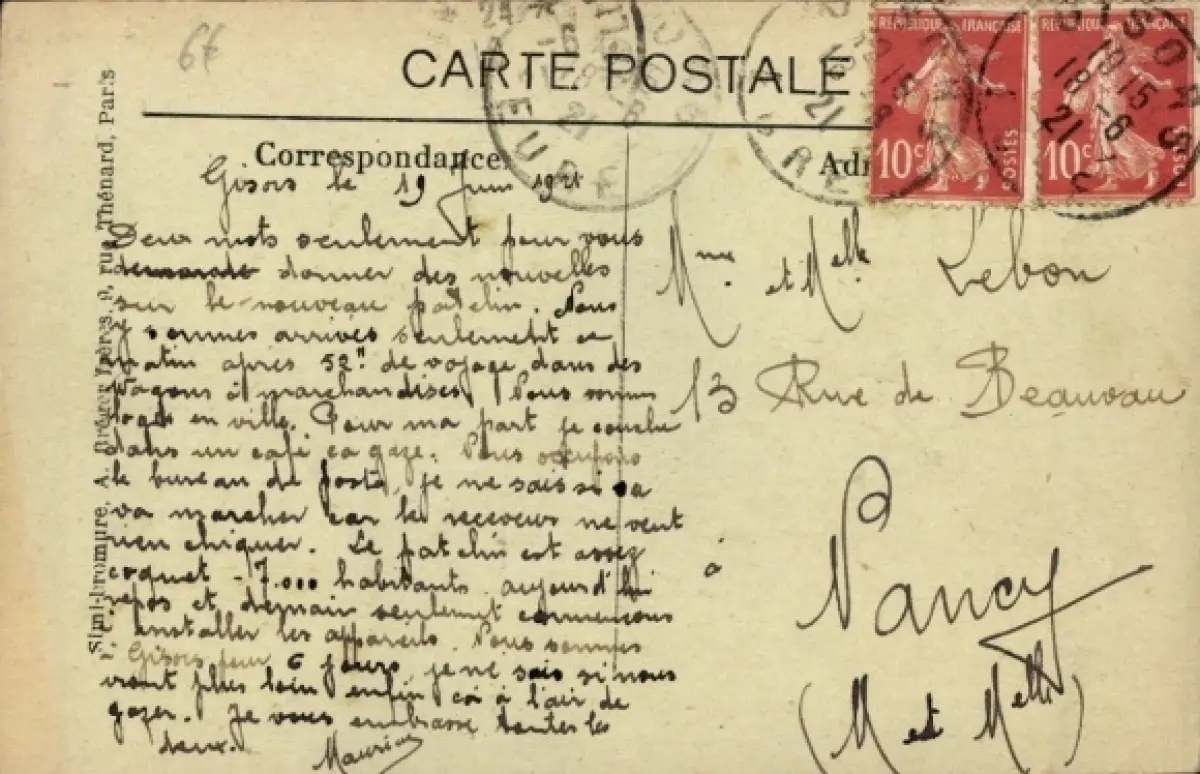 CARTE POSTALE
Correspondance
Gisors le 19 Juin 1921
Deux mots seulement pour vous
donner des nouvelles
sur le nouveau patelin. Nous
y sommes arrivés seulement ce
matin après 52" de voyage dans des
wagons à marchandises. Nous sommes
logés en ville. Pour ma part je couche
dans un café ça gaze. Nous occupons
le bureau de poste, je ne sais si ça
va marcher car le receveur ne veut
rien chiquer. Le patelin est assez
coquet - 7.000 habitants aujourd'hui
repos et demain seulement commencons
installer les appareils. Nous sommes
Gisors pour 6 jours je ne sais si nous
iront plus loin enfin ça à l'air de
gazer. Je vous embrasse toutes les
deux.
Maurice
Mme et Melle Lebon
13 Rue de Beauvau
à
Nancy
(M et Melle)
Simi-bromure, A. Breger frères, 9, rue Thénard, Paris
66
REPUBLIQUE FRANÇAISE
10c
POSTES
REPUBLIQUE FRANÇAISE
10c
GISORS
19 15
18 -6
21
EURE